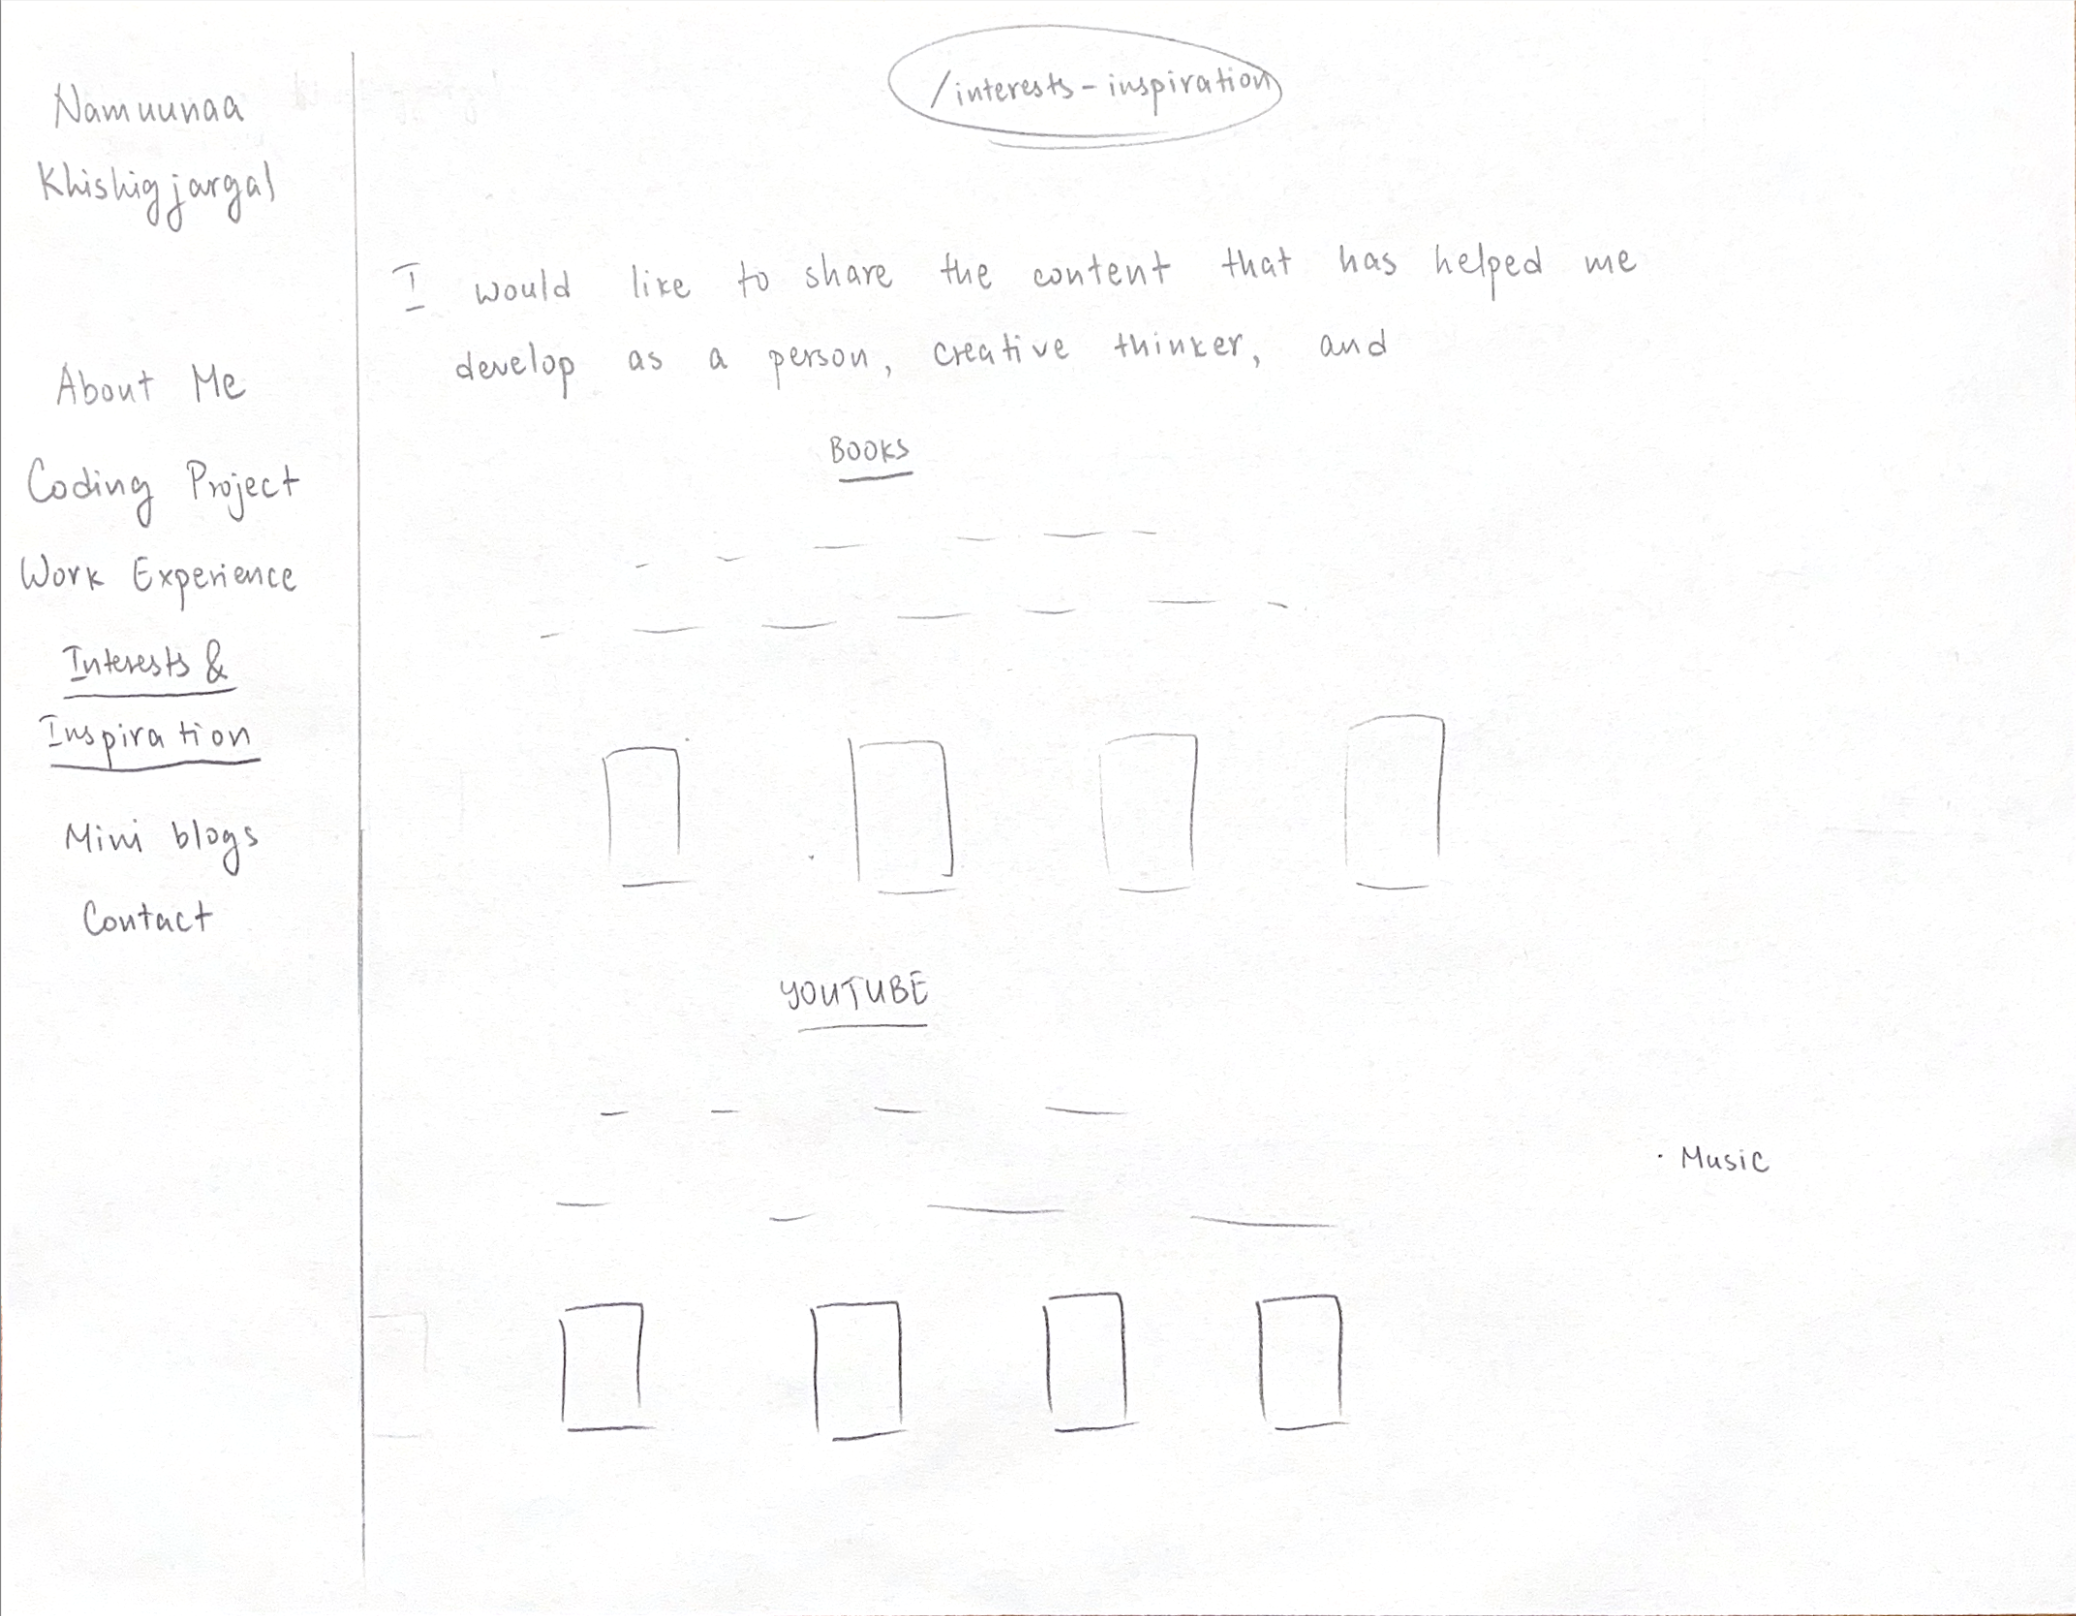 /interests-inspiration
Namuunaa
Khishigjargal
About Me
Coding Project
Work Experience
Interests &
Inspiration
Mini blogs
Contact
I would like to share the content that has helped me
develop as a person, creative thinker, and
BOOKS
YOUTUBE
· Music